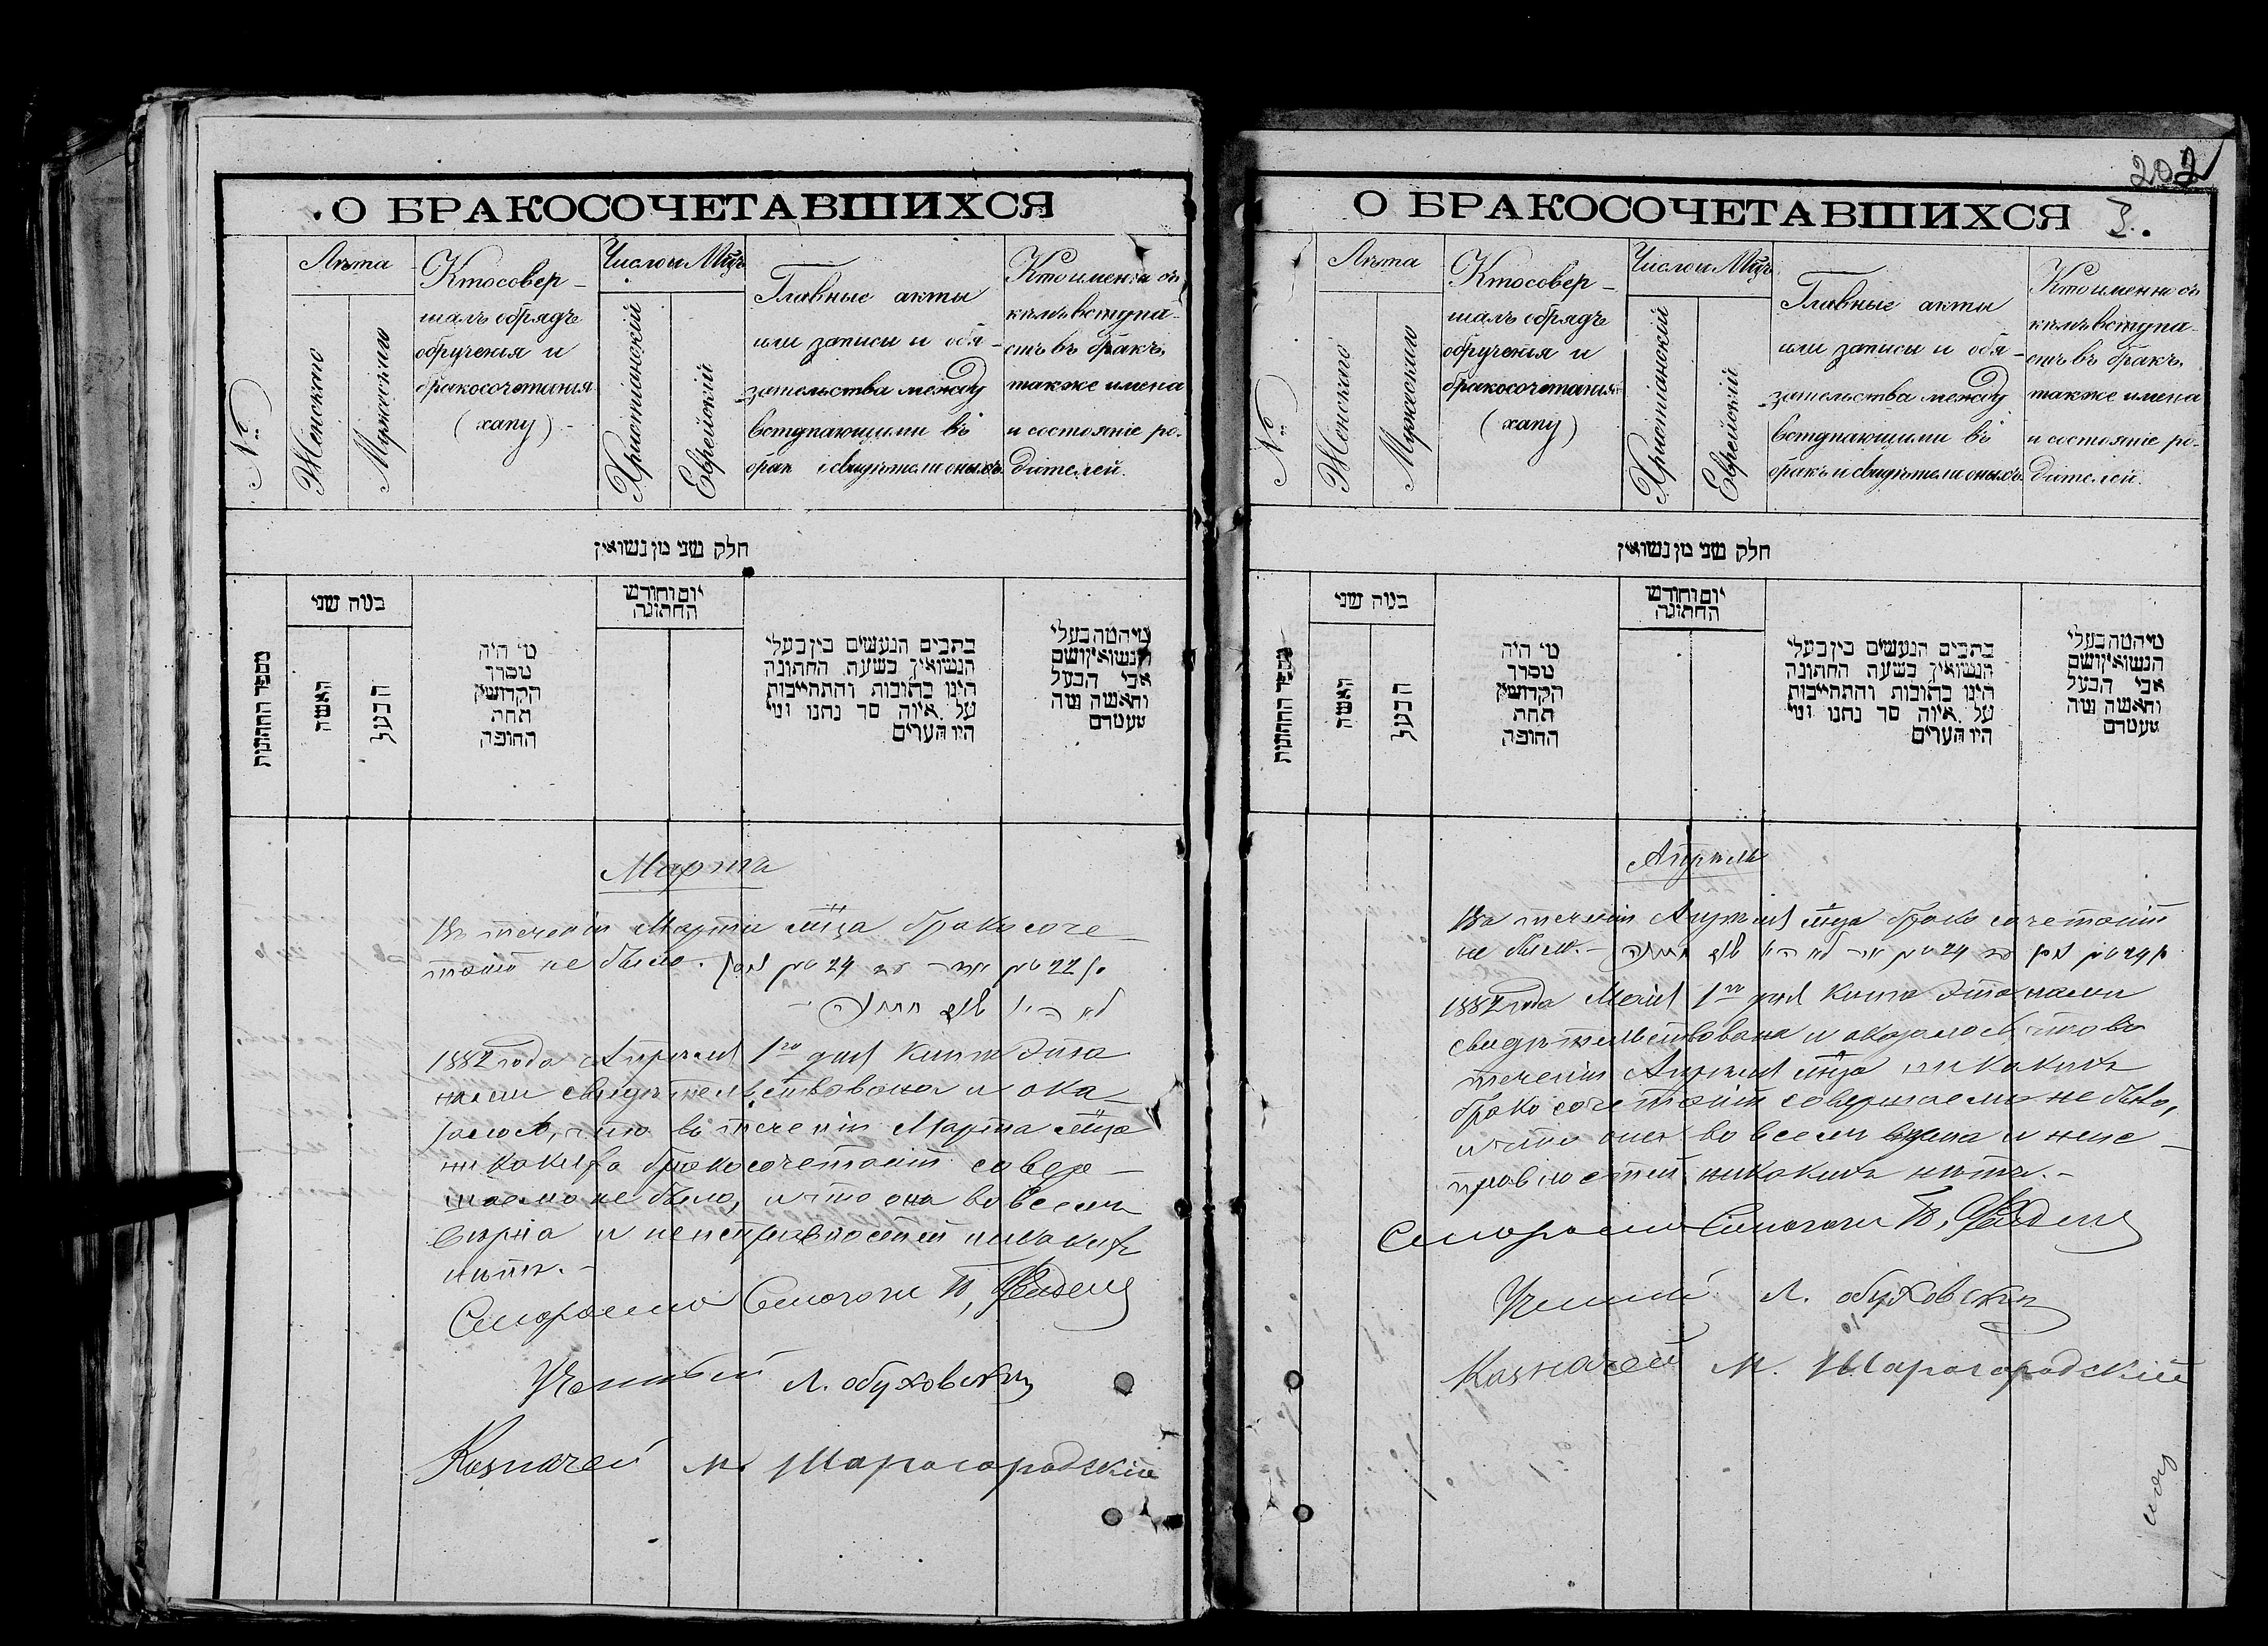 О БРАКОСОЧЕТАВШИХСЯ
№
Лѣта
Женскаго
Мужескаго
Кто совер-
шалъ обрядъ
обрученія и
бракосочетанія
(хапу)
Число и Мѣц
Христіанскій
Еврейскій
Главные акты
или записи и обя-
зательства между
вступающими въ
брак и свидѣтели оныхъ
Кто именно съ
кѣмъ вступа-
етъ въ бракъ,
также имена
и состояніе ро-
дителей.
חלק שני מן נשואין
מספר החתונות
כמה שני
האשה
הבעל
מי היה
מסדר
הקדושין
תחת
החופה
יום וחודש
החתונה
כתבים הנעשים בין בעלי
הנשואין בשעת החתונה
היינו כתובות והתחייבות
על איזה סך נתנו ומי
היו העדים
מי המה בעלי
הנשואין ושם
אבי הבעל
והאשה מה
מעמדם
Марта
Въ теченіи Марта мѣца бракосоче-
таній не было.
1882 года Апрѣля 1го дня книга эта
нами свидѣтельствована и ока-
залось, что въ теченіи Марта мѣца
никакихъ бракосочетаній совер-
шаемо не было, и что она во всемъ
вѣрна и неисправностей никакихъ
нѣтъ.-
Ученый Л. Обуховскій
Казначей М. Шарогородскій
202
О БРАКОСОЧЕТАВШИХСЯ 3.
№
Лѣта
Женскаго
Мужескаго
Кто совер-
шалъ обрядъ
обрученія и
бракосочетанія
(хапу)
Число и Мѣц
Христіанскій
Еврейскій
Главные акты
или записи и обя-
зательства между
вступающими въ
бракъ и свидѣтели оныхъ
Кто именно съ
кѣмъ вступа-
етъ въ бракъ,
также имена
и состояніе ро-
дителей.
חלק שני מן נשואין
מספר החתונות
כמה שני
האשה
הבעל
מי היה
מסדר
הקדושין
תחת
החופה
יום וחודש
החתונה
כתבים הנעשים בין בעלי
הנשואין בשעת החתונה
היינו כתובות והתחייבות
על איזה סך נתנו ומי
היו העדים
מי המה בעלי
הנשואין ושם
אבי הבעל
והאשה מה
מעמדם
Апрель
Въ теченіи Апрѣля мѣца бракосочетаній
не было.-
1882 года Маія 1го дня книга эта нами
свидѣтельствована и оказалось, что въ
теченіи Апрѣля мѣца никакихъ
бракосочетаній совершаемо не было,
и что она во всемъ вѣрна и неис-
правностей никакихъ нѣтъ.-
Ученый Л. Обуховскій
Казначей М. Шарогородскій